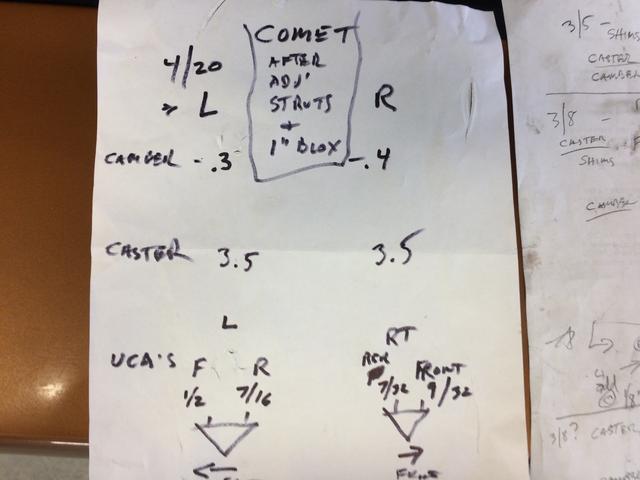 COMET
4/20 AFTER
ADJ'
» L STRUTS R
+
CAMBER -.3 1" BLOX -.4
CASTER 3.5 3.5
L RT
UCA'S F R RER FRONT
1/2 7/16 7/32 9/32
3/5 - SHIMS
CASTER
CAMBER
3/8 -
CASTER
SHIMS
CAMBER
3/8? CASTER